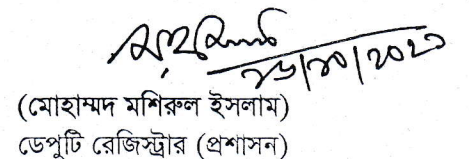 ২৬/১০/২০২৩
(মোহাম্মদ মশিরুল ইসলাম)
ডেপুটি রেজিস্ট্রার (প্রশাসন)